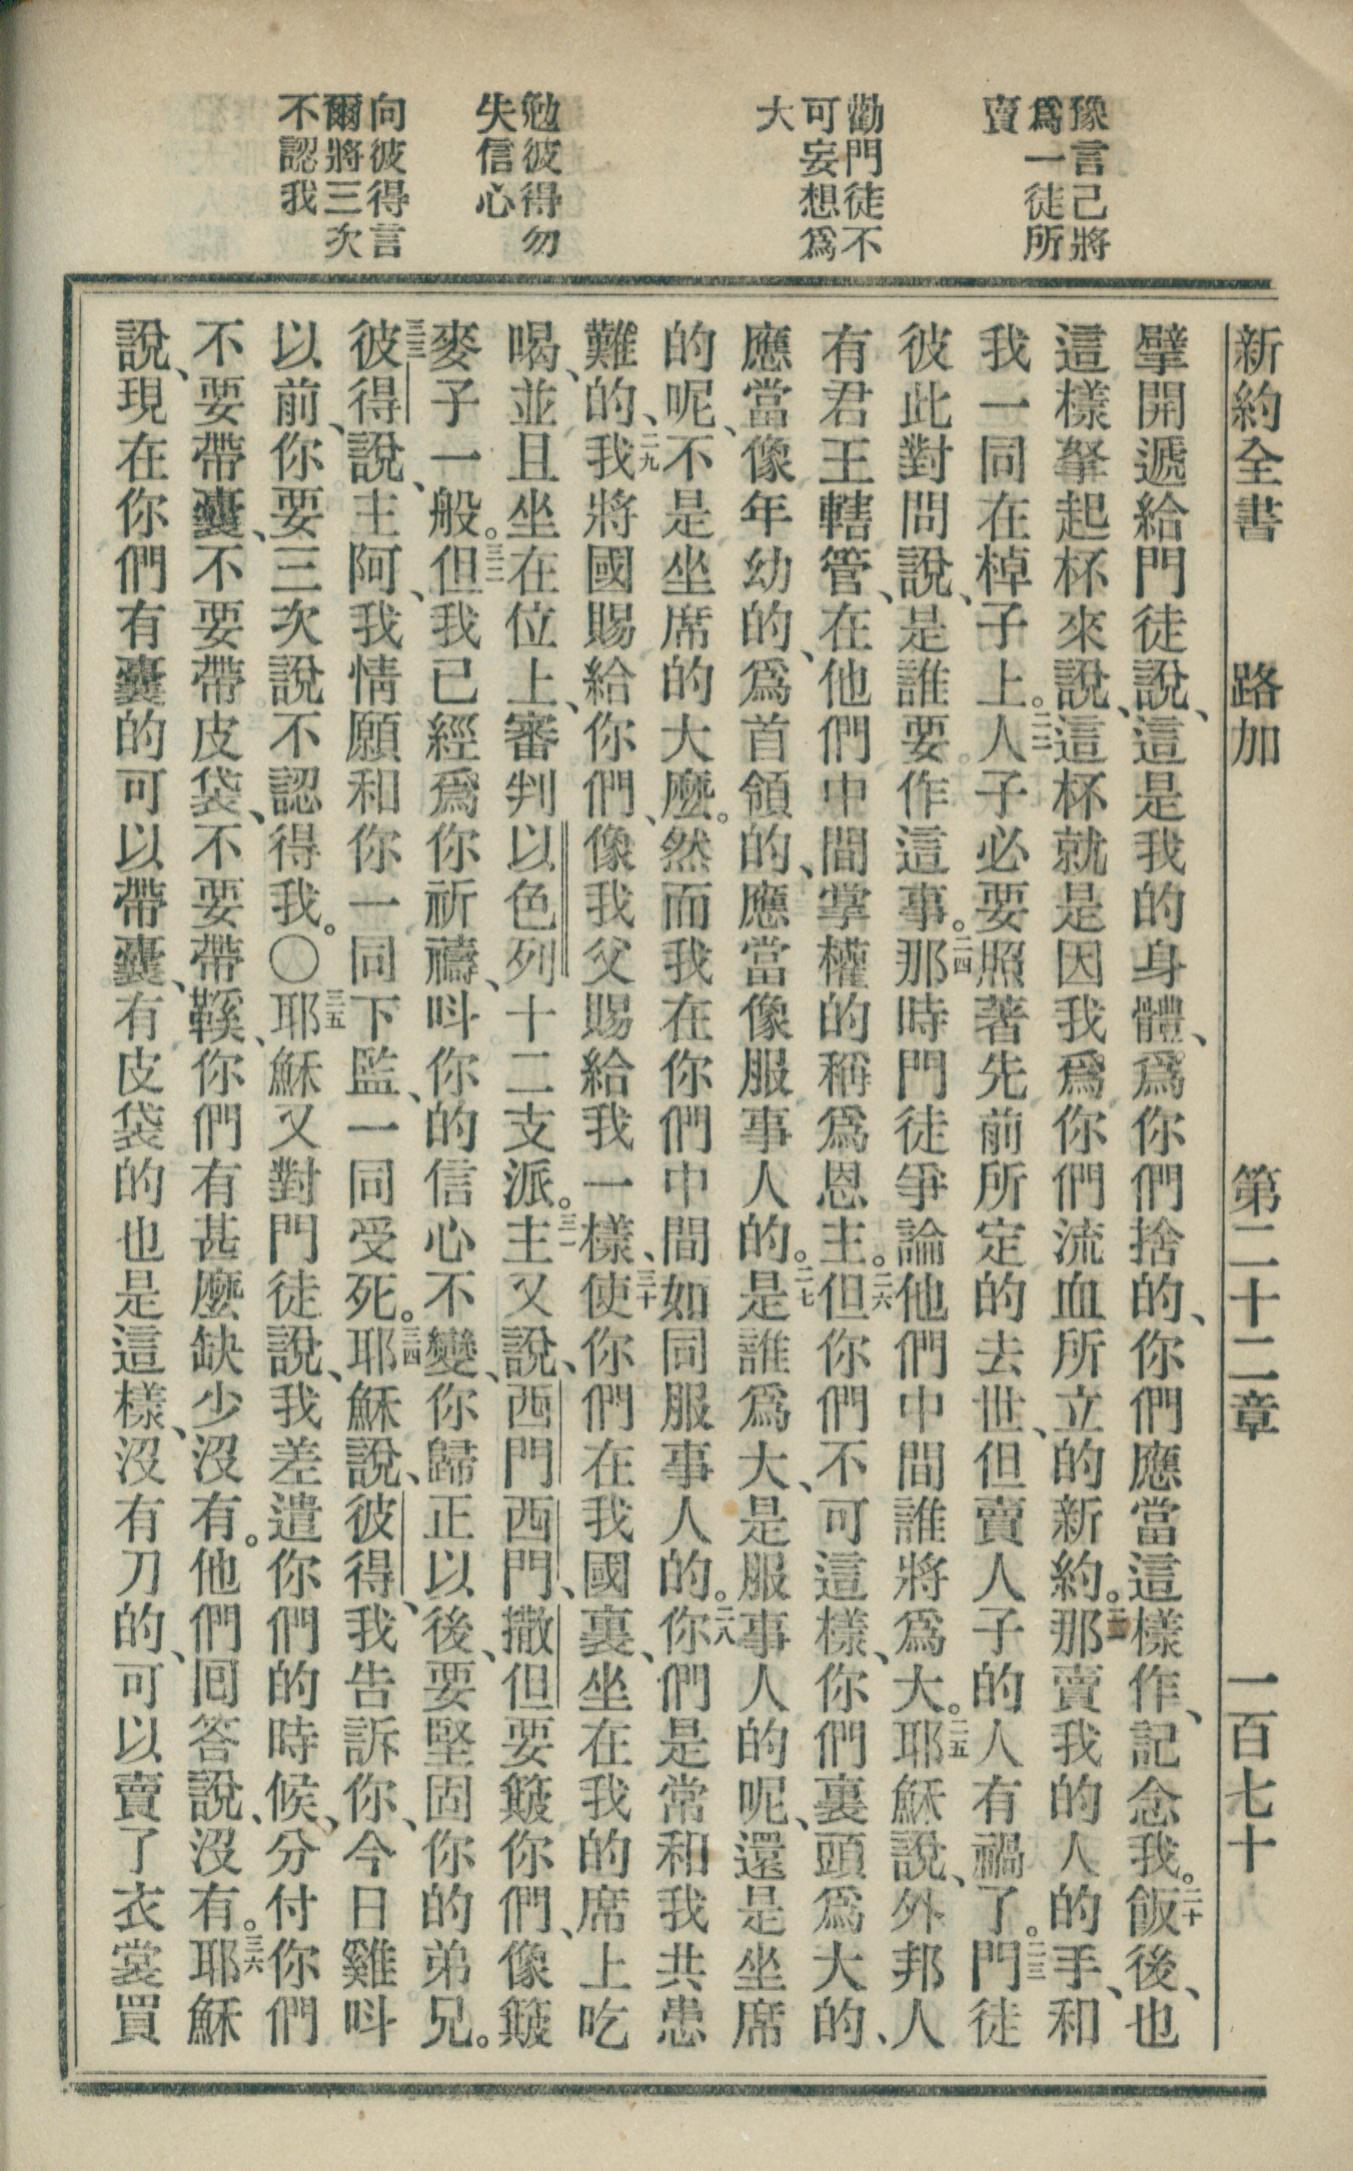 新約全書　路加　第二十二章　一百七十九
豫言己將
爲一徒所
賣
勸門徒不
可妄想爲
大
勉彼得勿
失信心
向彼得言
爾將三次
不認我
擘開遞給門徒說、這是我的身體、爲你們捨的、你們應當這樣作、記念我。二十飯後、也
這樣拏起杯來說、這杯就是因我爲你們流血所立的新約。二一那賣我的人的手、和
我一同在棹子上。二二人子必要照著先前所定的去世、但賣人子的人有禍了。二三門徒
彼此對問說、是誰要作這事。二四那時門徒爭論他們中間誰將爲大。二五耶穌說、外邦人
有君王轄管、在他們中間掌權的稱爲恩主。二六但你們不可這樣、你們裏頭爲大的、
應當像年幼的、爲首領的、應當像服事人的。二七是誰爲大、是服事人的呢、還是坐席
的呢、不是坐席的大麼。然而我在你們中間如同服事人的。二八你們是常和我共患
難的、二九我將國賜給你們、像我父賜給我一樣、三十使你們在我國裏、坐在我的席上吃
喝、並且坐在位上、審判以色列十二支派。三一主又說、西門西門、撒但要簸你們、像簸
麥子一般。三二但我已經爲你祈禱、呌你的信心不變、你歸正以後、要堅固你的弟兄。
三三彼得說、主阿、我情願和你一同下監、一同受死。三四耶穌說、彼得、我告訴你、今日雞呌
以前、你要三次說不認得我。〇三五耶穌又對門徒說、我差遣你們的時候、分付你們
不要帶囊、不要帶皮袋、不要帶鞵、你們有甚麼缺少沒有。他們回答說、沒有。三六耶穌
說、現在你們有囊的可以帶囊、有皮袋的也是這樣、沒有刀的、可以賣了衣裳買